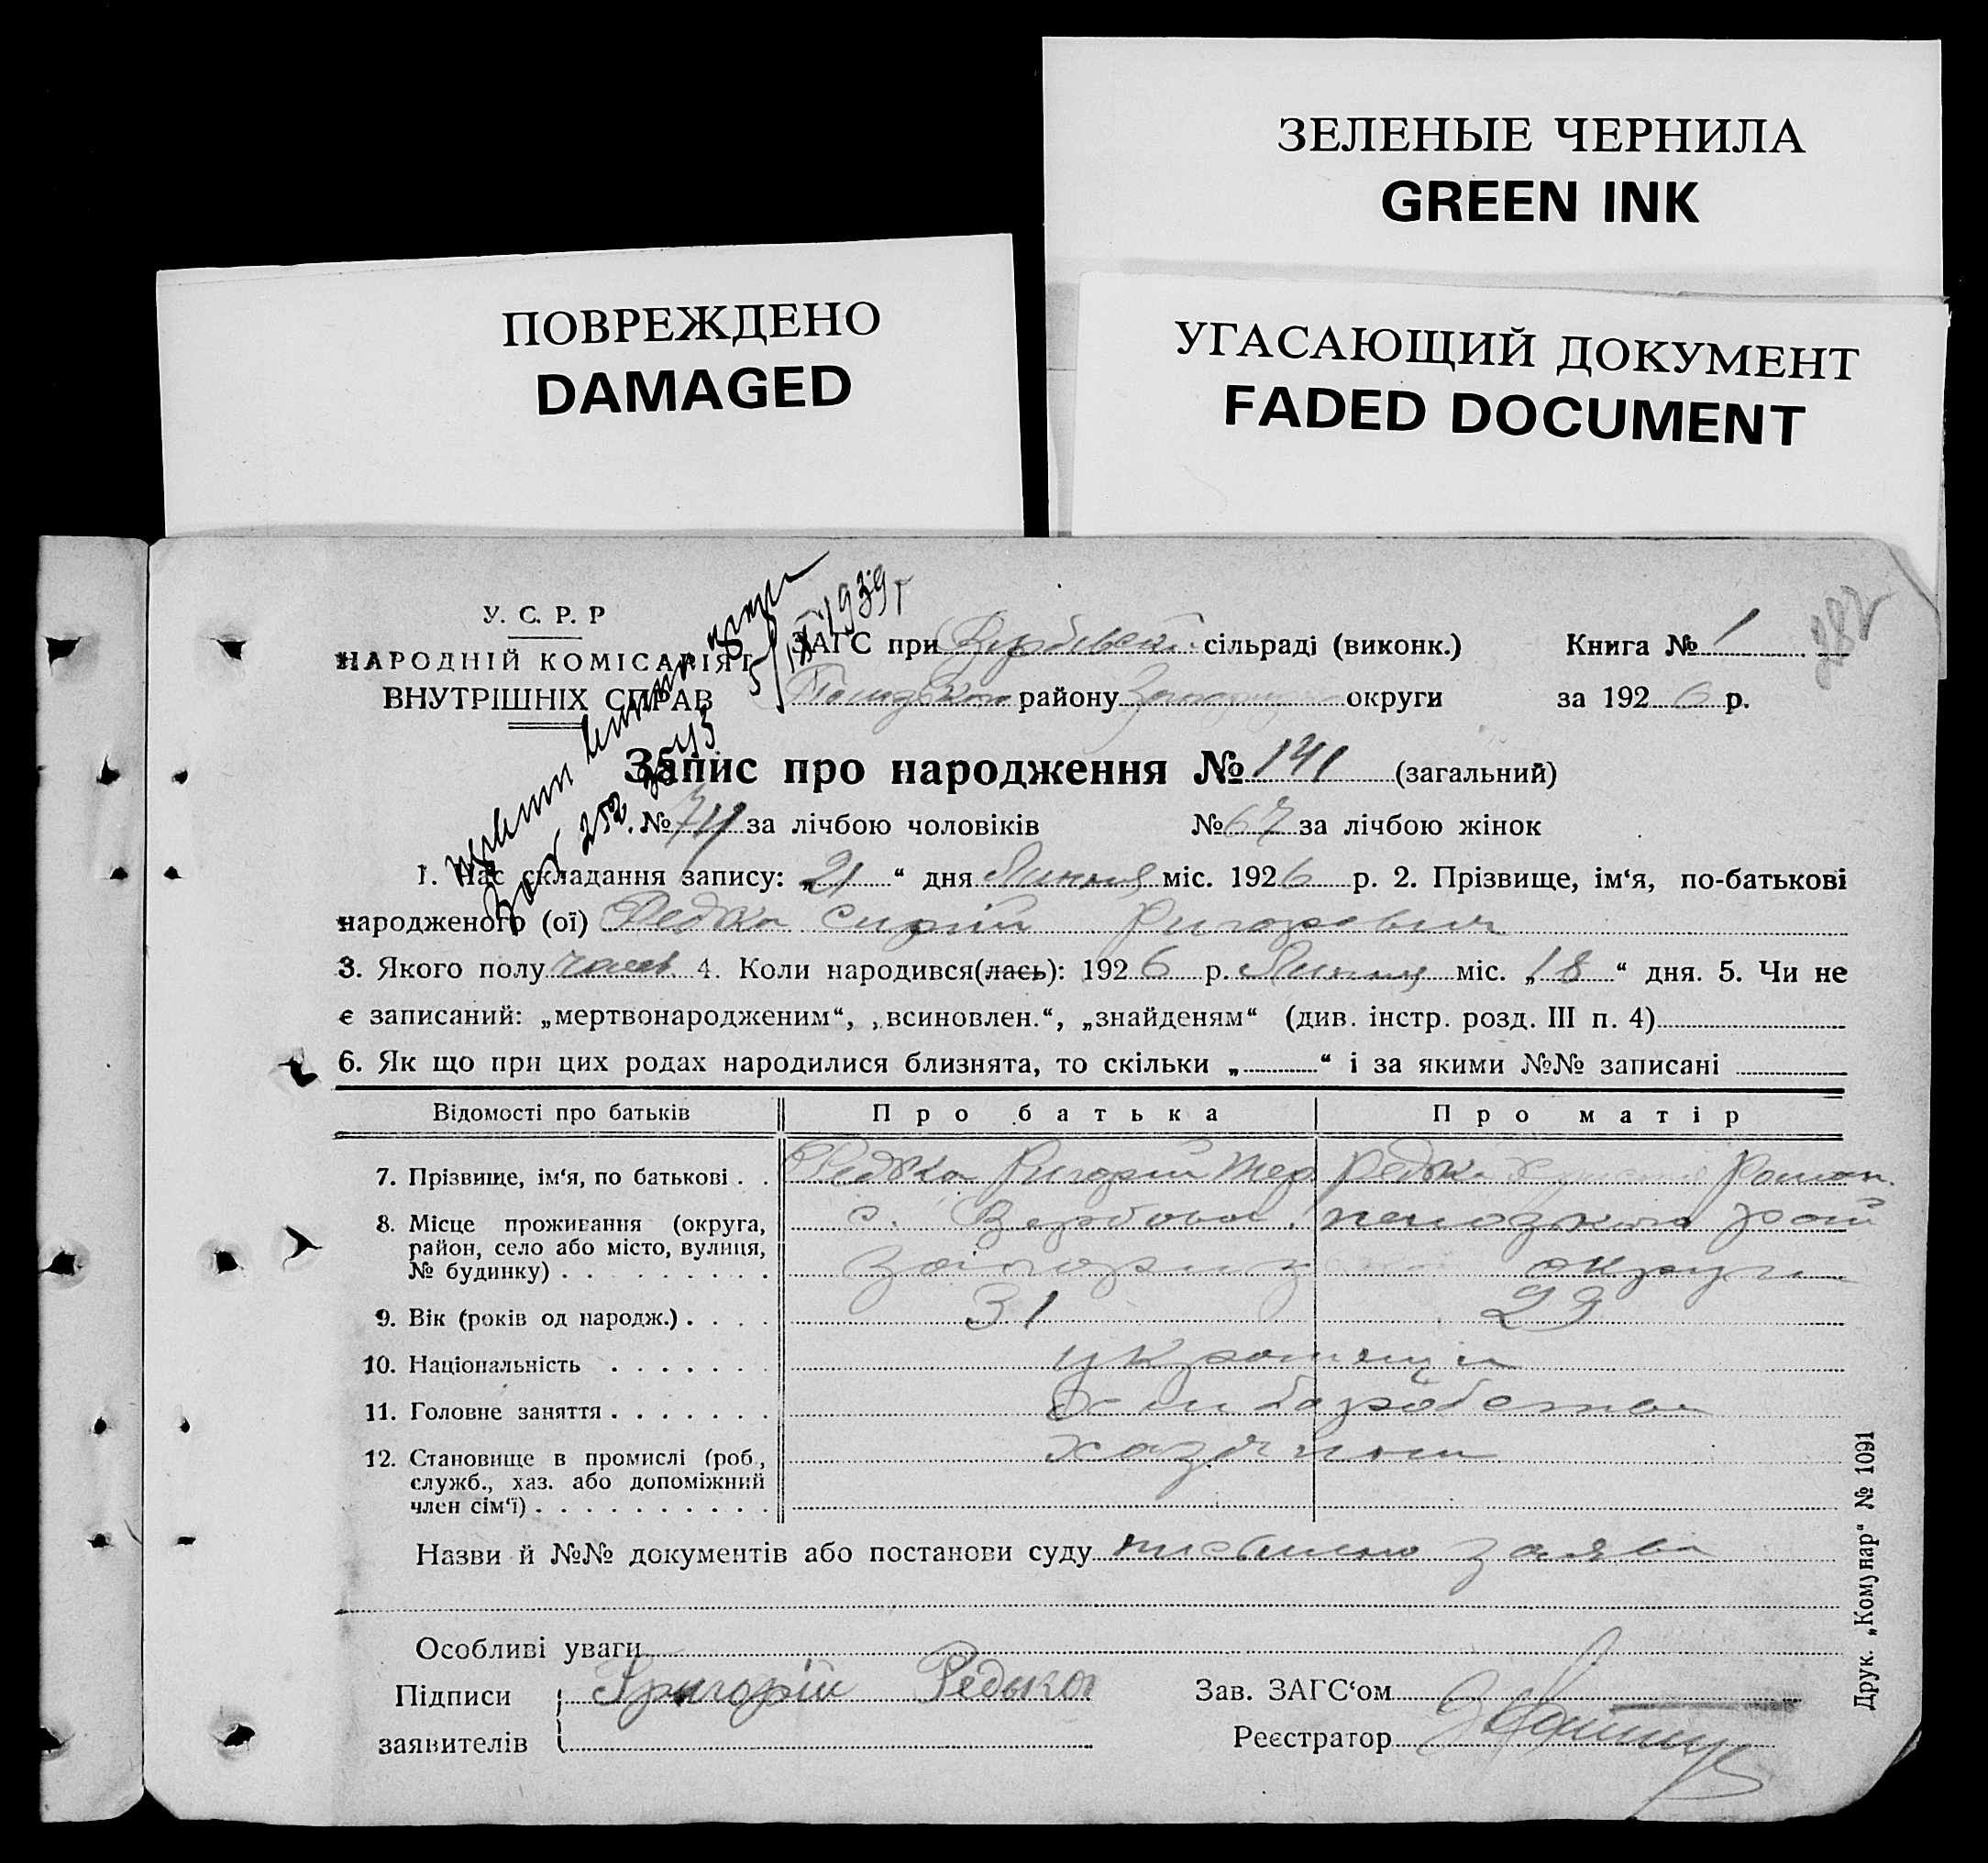 ЗЕЛЕНЫЕ ЧЕРНИЛА
GREEN INK
ПОВРЕЖДЕНО
DAMAGED
УГАСАЮЩИЙ ДОКУМЕНТ
FADED DOCUMENT
У. С. Р. Р
НАРОДНІЙ КОМІСАРІЯТ
ВНУТРІШНІХ СПРАВ
5/IX 1939 г
ЗАГС при сільраді (виконк.) Книга № 1
району округи за 192 6 р.
Запис про народження № 141 (загальний)
№ 74 за лічбою чоловіків № 67 за лічбою жінок
1. Час складання запису: „ 21 “ дня Липня міс. 192 6 р. 2. Прізвище, ім‘я, по-батькові
народженого (ої) Редька Сергій Григорович
3. Якого полу чолов 4. Коли народився(лась): 192 6 р. Липня міс. „ 18 “ дня. 5. Чи не
є записаний: „мертвонародженим“, „всиновлен.“, „знайденям“ (див. інстр. розд. III п. 4)
6. Як що при цих родах народилися близнята, то скільки „ “ і за якими №№ записані
Відомості про батьків Про батька Про матір
7. Прізвище, ім‘я, по батькові . . Редька Григорій Редька Роман.
8. Місце проживання (округа, с. Вербова
район, село або місто, вулиця,
№ будинку) . . . . . . . . . округи
9. Вік (років од народж.) . . . . 31 29
10. Національність . . . . . . . українці
11. Головне заняття . . . . . . . хліборобство
12. Становище в промислі (роб., хазяїни
служб., хаз. або допоміжний
член сім‘ї) . . . . . . . . . . .
Назви й №№ документів або постанови суду заява
Особливі уваги
Підписи Григорій Редька Зав. ЗАГС‘ом
заявителів Реєстратор
Друк. „Комунар“ № 1091